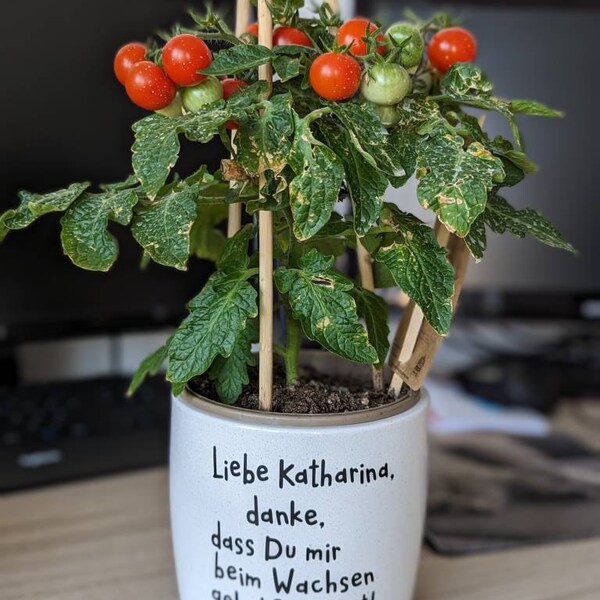 Liebe Katharina,
danke,
dass Du mir
beim Wachsen